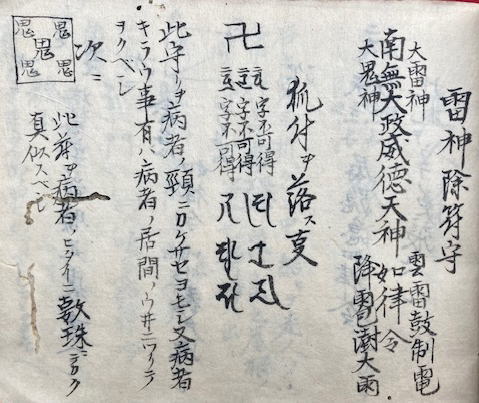 雷神除符守
大雷神
大鬼神
南無大政威徳天神如律令
雲雷鼓制電
降雹澍大雨
狐付ヲ落ス事
卍
字不可得
字不可得
字不可得
字不可得
此守リヲ病者ノ頸ニカケサセヨモシ又病者
キラウ事有ハ病者ノ居間ノウ井ニツイテ
ヲクベシ
次ニ
鬼鬼鬼鬼鬼
此符ヲ病者ノヒタイニ数珠ニテカク
真似スベシ